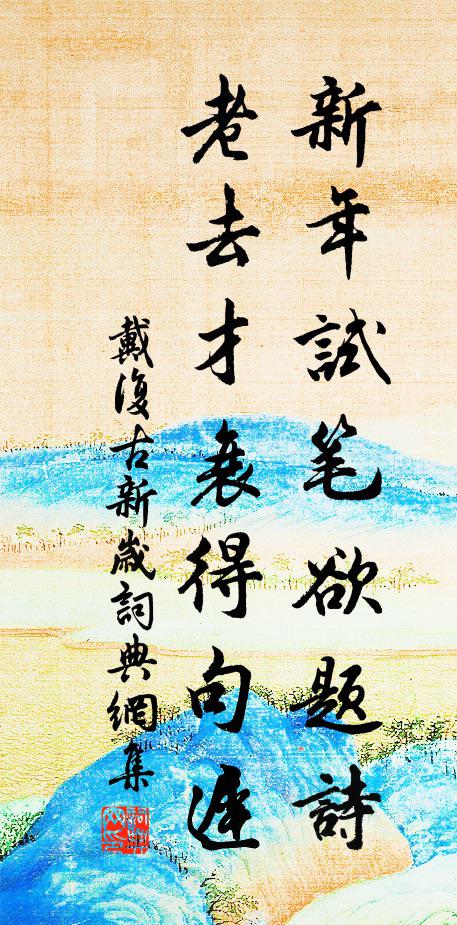 新年試笔欲题詩
老去才衰得句遲
戴復古新歲詞典網集